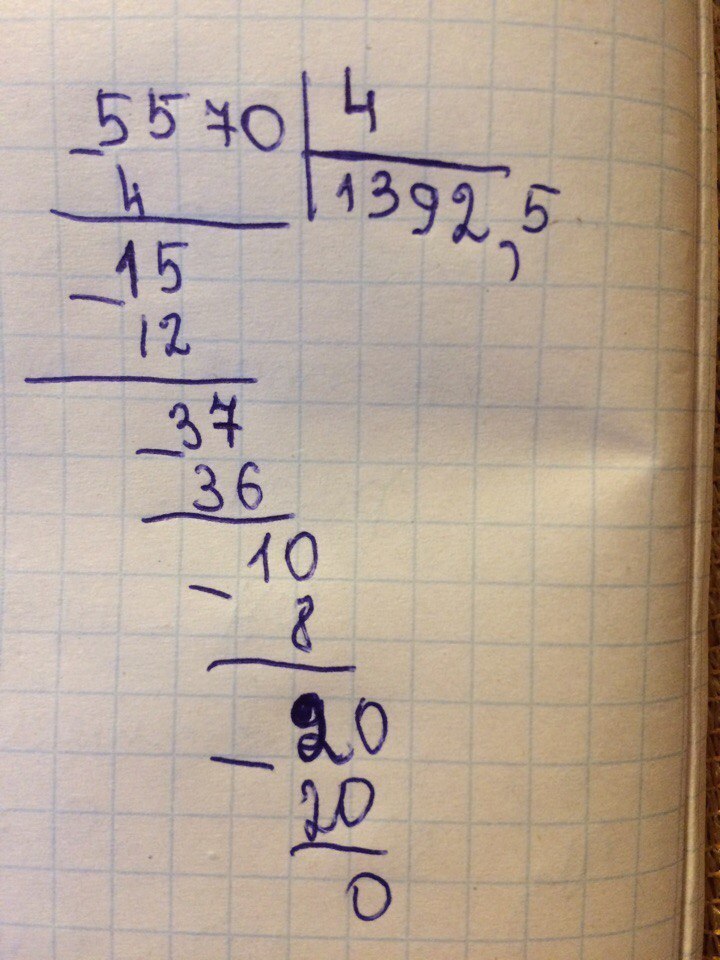 5570 4
4 1392,5
-15
12
-37
36
-10
8
-20
20
0